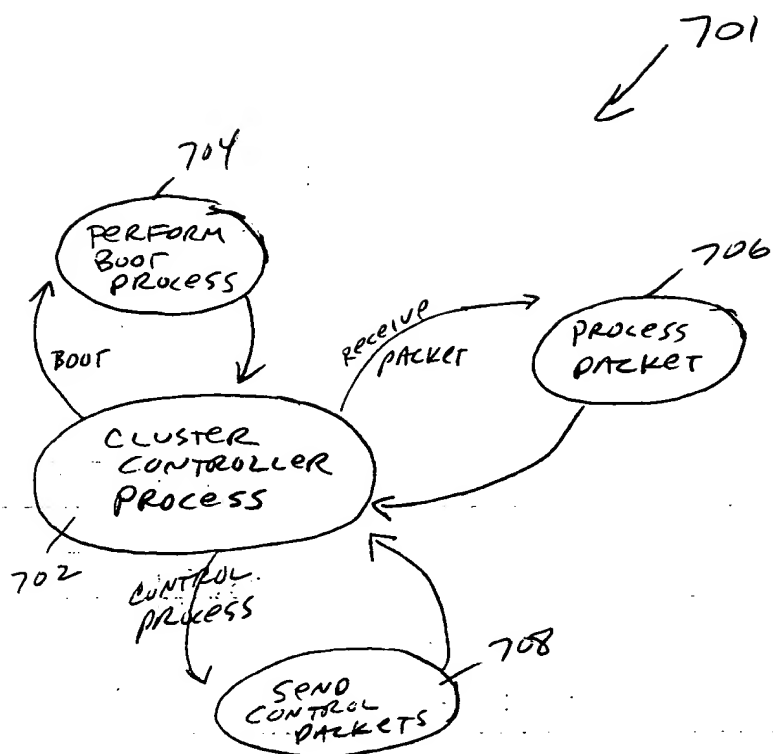 701
704
PERFORM
BOOT
PROCESS
706
PROCESS
PACKET
RECEIVE
PACKET
BOOT
CLUSTER
CONTROLLER
PROCESS
702
CONTROL
PROCESS
708
SEND
CONTROL
PACKETS